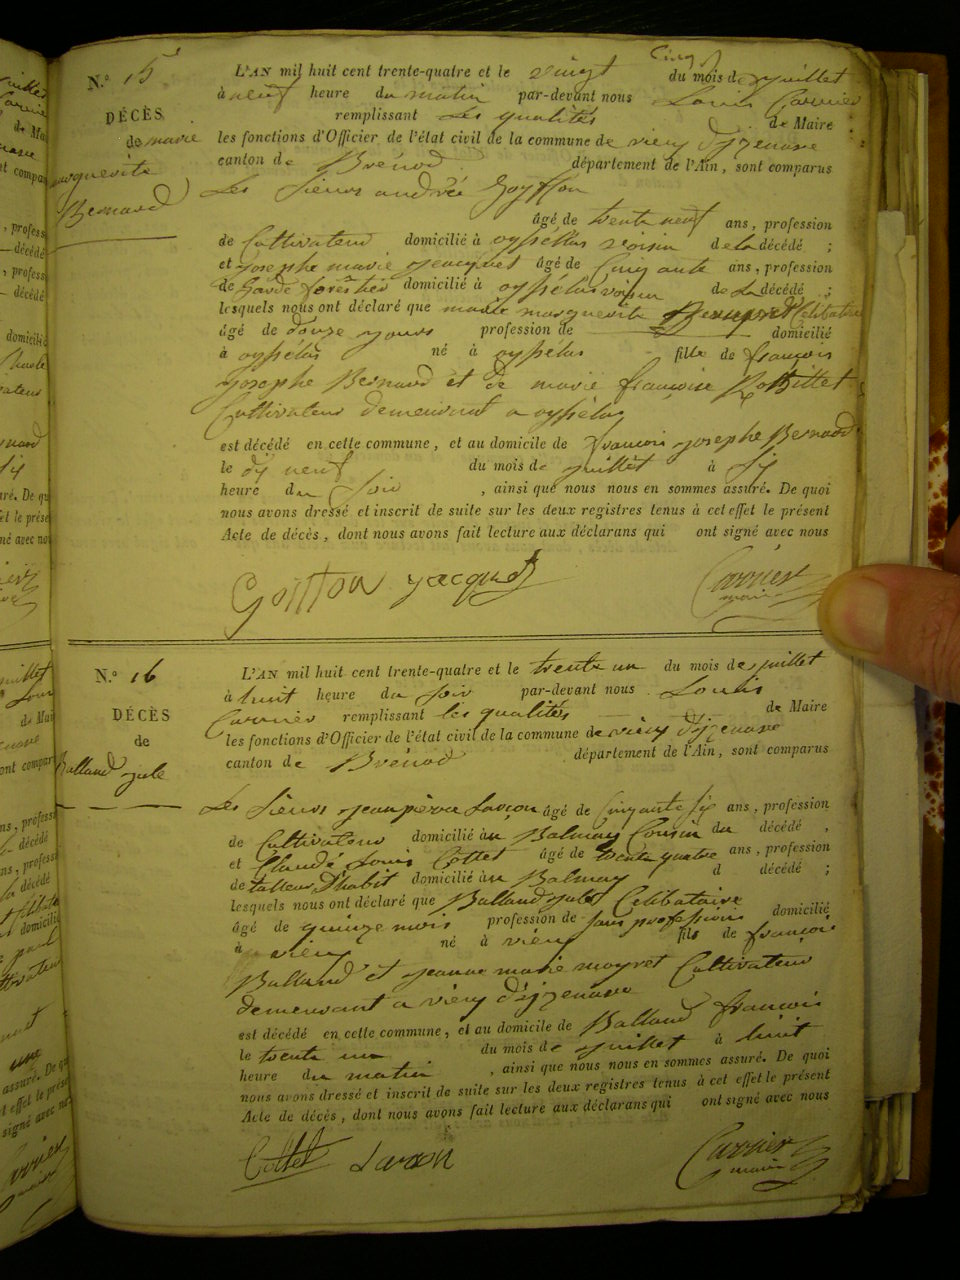 N.° 15
DÉCÈS
de marie
marguerite
Bernard
L'AN mil huit cent trente-quatre et le vingt Cinq du mois de juillet
à neuf heure du matin par-devant nous Louis Carrier
remplissant les qualités de Maire
les fonctions d'Officier de l'état civil de la commune de vieu d'jzenave
canton de Brénod département de l'Ain, sont comparus
Les sieurs andréé Goyffon
âgé de trente neuf ans, profession
de Cultivateur domicilié à oysselas voisin de la décédé ;
et josephe marie jacquet âgé de Cinquante ans, profession
de Garde forestier domicilié à oysselas voisin de la décédé ;
lesquels nous ont déclaré que marie marguerite Célibataire
âgé de douze jours profession de domicilié
à oysselas né à oysselas fille de françois
josephe Bernard et de marie françoise
Cultivateur demeurant a oysselas
est décédé en cette commune, et au domicile de francois josephe Bernard
le dix neuf du mois de juillet à six
heure du soir, ainsi que nous nous en sommes assuré. De quoi
nous avons dressé et inscrit de suite sur les deux registres tenus à cet effet le présent
Acte de décès, dont nous avons fait lecture aux déclarans qui ont signé avec nous
Goiffon jacquet Carrier
maire
N.° 16
DÉCÈS
de
Balland jule
L'AN mil huit cent trente-quatre et le trente un du mois de juillet
à huit heure du soir par-devant nous Louis
Carrier remplissant les qualités de Maire
les fonctions d'Officier de l'état civil de la commune de vieu d'jzenave
canton de Brénod département de l'Ain, sont comparus
Les sieurs jean pierre Savon âgé de Cinquante six ans, profession
de Cultivateur domicilié à au Balmay Cousin du décédé ,
et Claude Louis Cottet âgé de trente quatre ans, profession
de talleur D'habit domicilié à au Balmay d décédé ;
lesquels nous ont déclaré que Balland jules Célibataire
âgé de quinze mois profession de sans profession domicilié
à vieu né à vieu fils de françois
Balland et jeanne marie moyret Cultivateur
demeurant a vieu d'jzenave
est décédé en cette commune, et au domicile de Balland francois
le trente un du mois de juillet à huit
heure du matin, ainsi que nous nous en sommes assuré. De quoi
nous avons dressé et inscrit de suite sur les deux registres tenus à cet effet le présent
Acte de décès, dont nous avons fait lecture aux déclarans qui ont signé avec nous
Cottet Savon Carrier
maire